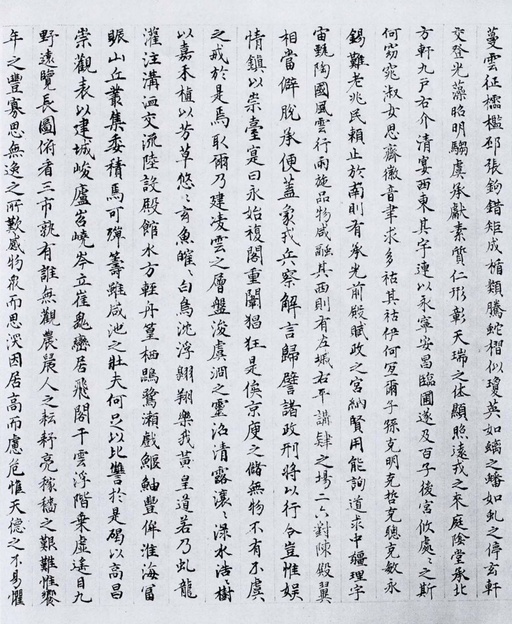 蔓雲征櫺檻邳張鉤錯矩成楯類騰蛇槢似瓊英如螭之蟠如虬之停玄軒
交登光藻昭明騶虞承獻素質仁形彰天瑞之休顯照遠戎之來庭陰堂承北
方軒九戶右介清宴西東其宇連以永寧安昌臨圃遂及百子後宮攸處〻之斯
何窈窕淑女思齊徽音聿求多祜其祜伊何宜爾子孫克明克哲克聰克敏永
錫難老兆民賴止於南則有承光前殿賦政之宮納賢用能詢道求中疆理宇
宙甄陶國風雲行雨施品物咸融其西則有左墄右平講肄之場二六對陳殿翼
相當僻脫承便蓋象戎兵察解言歸譬諸政刑將以行令豈惟娛
情鎮以崇臺寔曰永始複閣重闈猖狂是俟京庾之儲無物不有不虞
之戒於是焉取爾乃建凌雲之層盤浚虞淵之靈沼清露瀼〻淥水浩〻樹
以嘉木植以芳草悠〻玄魚㿥〻白鳥沈浮翱翔樂我黃皇道若乃虬龍
灌注溝洫交流陸設殿館水方輕舟篁栖鵾鷺瀨戲鰋鮋豐侔淮海富
賑山丘叢集委積焉可殫籌雖咸池之壯夫何足以比讐於是碣以高昌
崇觀表以建城峻廬岧嶤岑立崔嵬巒居飛閣干雲浮階乘虛遙目九
野遠覽長圖俯看三市孰有誰無觀農人之耘耔亮稼穡之艱難惟饗
年之豐寡思無逸之所歎感物衆而思深因居高而慮危惟天德之不易懼